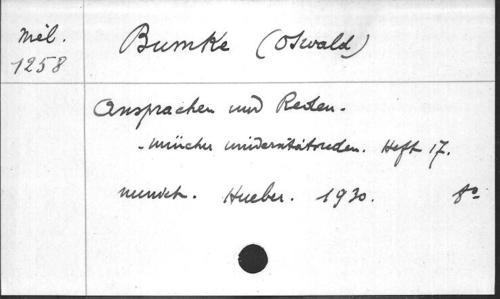 Mél.
1258
Bumke (Oswald)
Ansprachen und Reden.
- Münchn universitätsreden. Heft 17.
Munich. Hueber. 1930. 8º